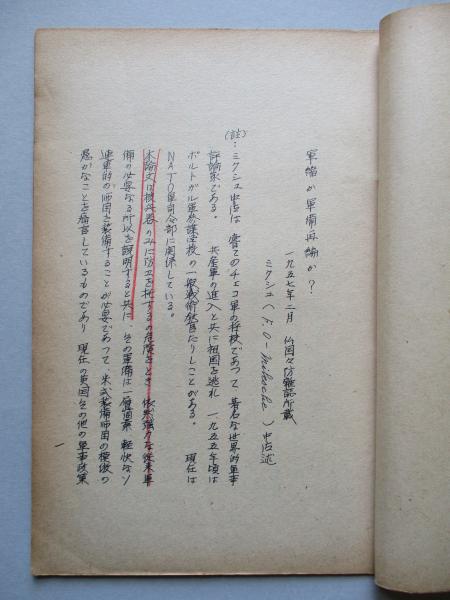 軍縮か軍備再編か?
一九五七年二月 仏国々防雑誌所載
ミクシュ(F.O-Miksche)中佐述
(註):ミクシュ中佐は嘗てのチェコ軍の将校であつて 著名な世界的軍事
評論家である。 共産軍の進入と共に祖国を逃れ 一九五五年頃は
ポルトガル軍参謀学校の一般戦術教官たりしことがある。 現在は
NATO軍司令部に関係している。
本論文は核兵器のみに防卫を托するの危険をとき 依然強力な従来軍
備の必要なる所以を説明すると共に、その軍備は一層簡素 軽快なソ
連軍的師団を装備することが必要であつて、米式装備師団の模倣の
愚かなことを痛言しているものであり 現在の英国その他の軍事政策
一